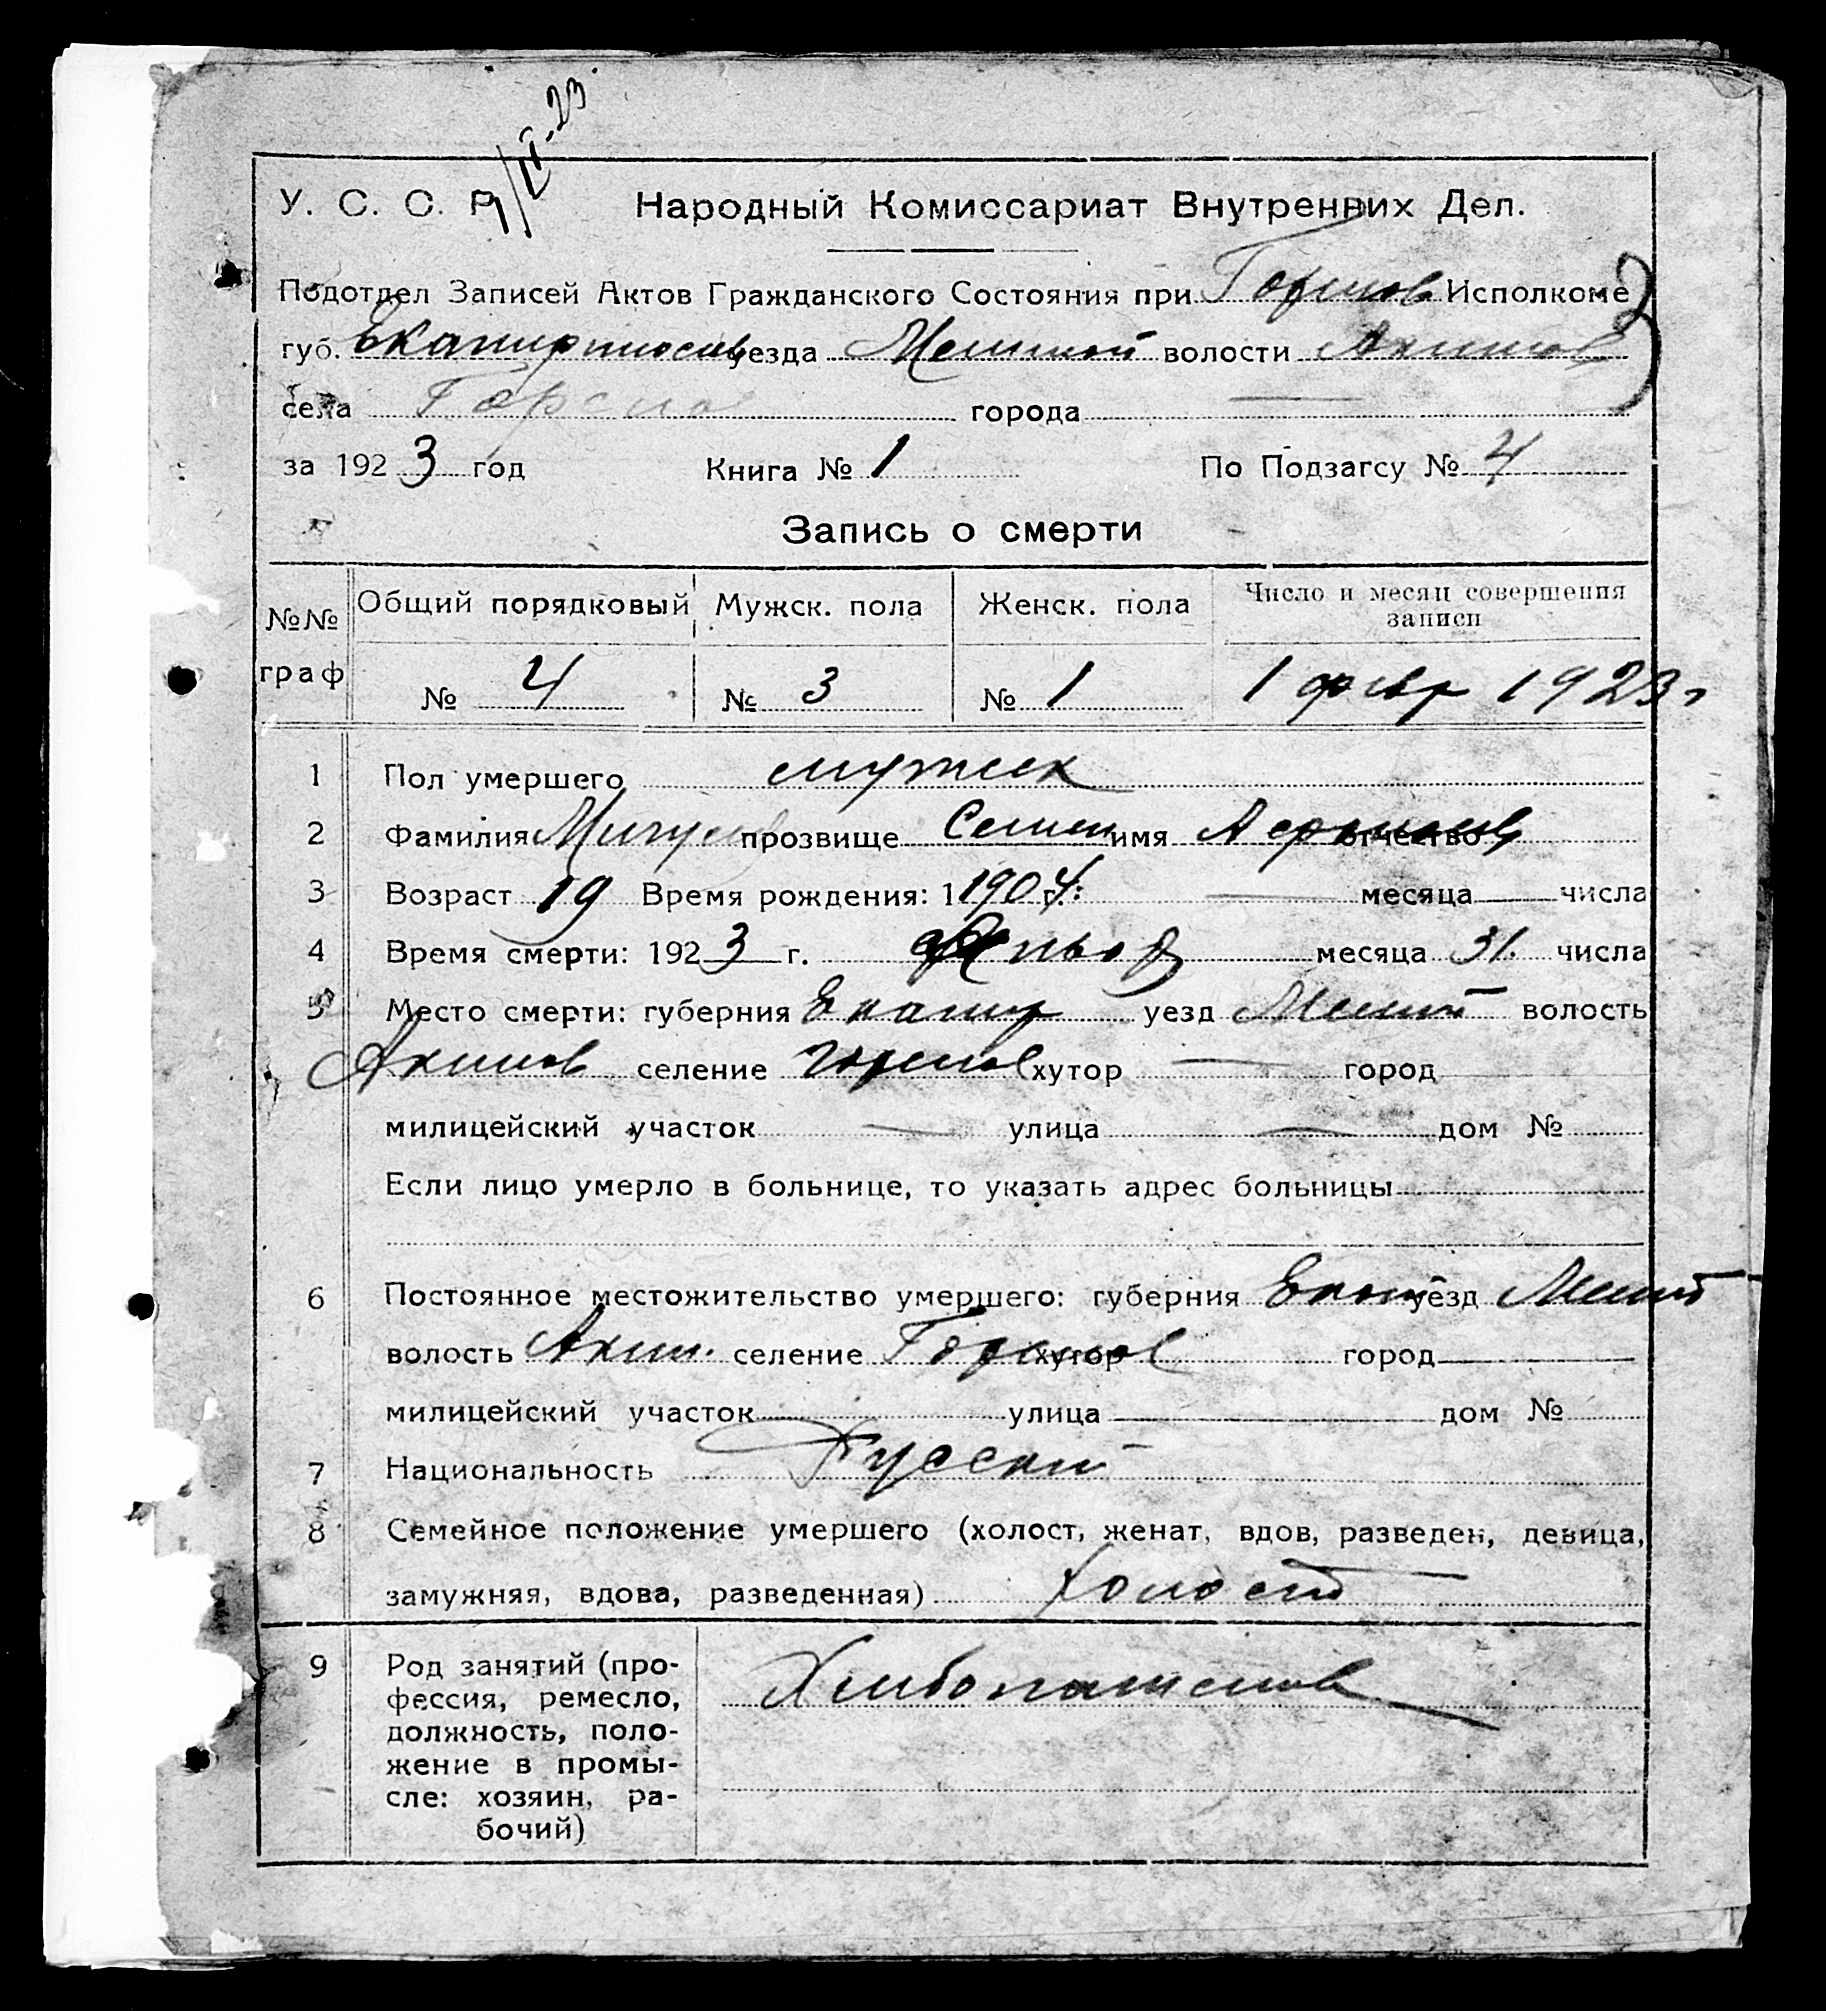 1/II-23.
У. С. С. Р. Народный Комиссариат Внутренних Дел.
Подотдел Записей Актов Гражданского Состояния при Исполкоме
губ. уезда волости
села города
за 1923 год Книга № 1 По Подзагсу № 4
Запись о смерти
№№ граф Общий порядковый Мужск. пола Женск. пола Число и месяц совершения записи
№ 4 № 3 № 1 1 февр 1923 г
1 Пол умершего мужск
2 Фамилия прозвище Семен имя отчество
3 Возраст 19 Время рождения: 1 1904 г. месяца числа
4 Время смерти: 1923 г. месяца 31. числа
5 Место смерти: губерния Екатер уезд Мелит волость
Акимов селение Горелов хутор город
милицейский участок улица дом №
Если лицо умерло в больнице, то указать адрес больницы
6 Постоянное местожительство умершего: губерния Екат уезд Мелит
волость Аким. селение Горелов хутор город
милицейский участок улица дом №
7 Национальность Русский
8 Семейное положение умершего (холост, женат, вдов, разведен, девица,
замужняя, вдова, разведенная) Холост
9 Род занятий (про-
фессия, ремесло,
должность, поло-
жение в промы-
сле: хозяин, ра-
бочий)